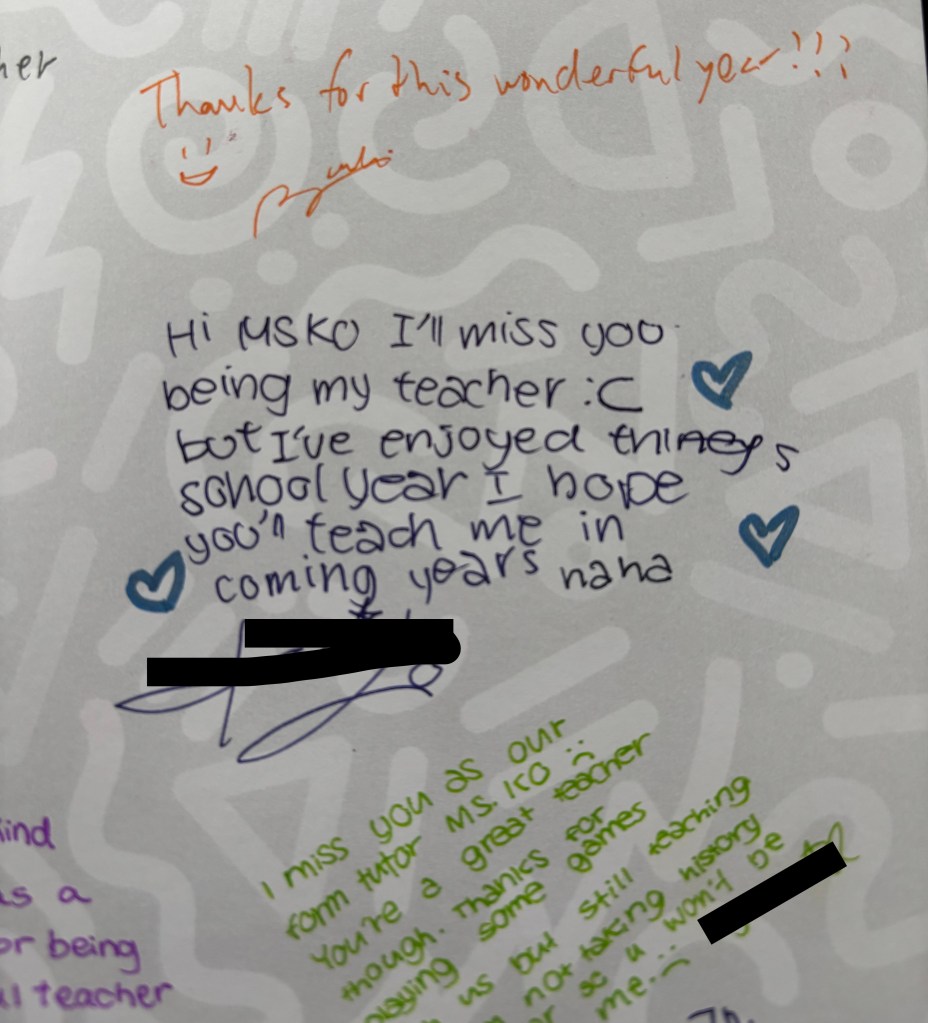 her
Thanks for this wonderful year!!!
Hi MSKO I'll miss you
being my teacher :C
but I've enjoyed
school year I hope
you'll teach me in
coming years haha
I miss you as our
form tutor MS. KO :(
You're a great teacher
though. Thanks for
playing some games
us but still teaching
not taking history
so u won't be
me... :(
kind
as a
or being
teacher